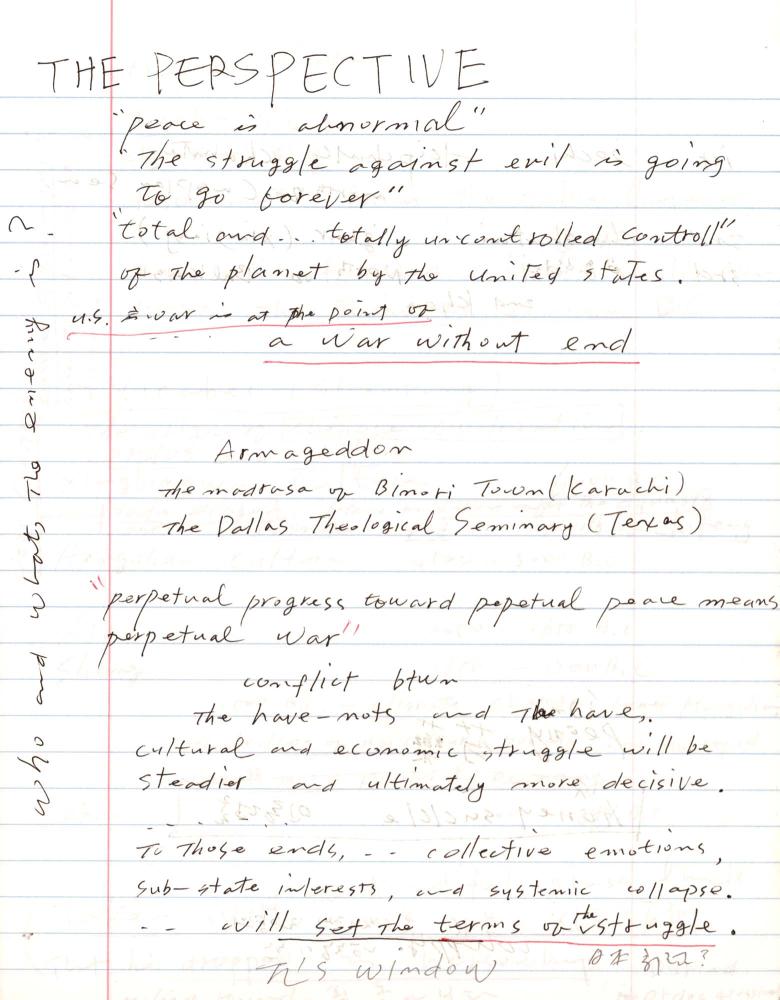 THE PERSPECTIVE
"peace is abnormal"
"The struggle against evil is going
to go forever"
"total and... totally uncontrolled controll"
of the planet by the united states.
u.s. war is at the point of
a war without end
who and what's the enemy?
Armageddon
the madrasa of Binori Town (Karachi)
the Dallas Theological Seminary (Texas)
"perpetual progress toward pepetual peace means
perpetual war"
conflict btwn
the have-nots and The have,.
cultural and economic struggle will be
steadier and ultimately more decisive.
To Those ends, .. collective emotions,
sub-state interests, and systemic collapse.
.. will set The terms of the struggle.
window